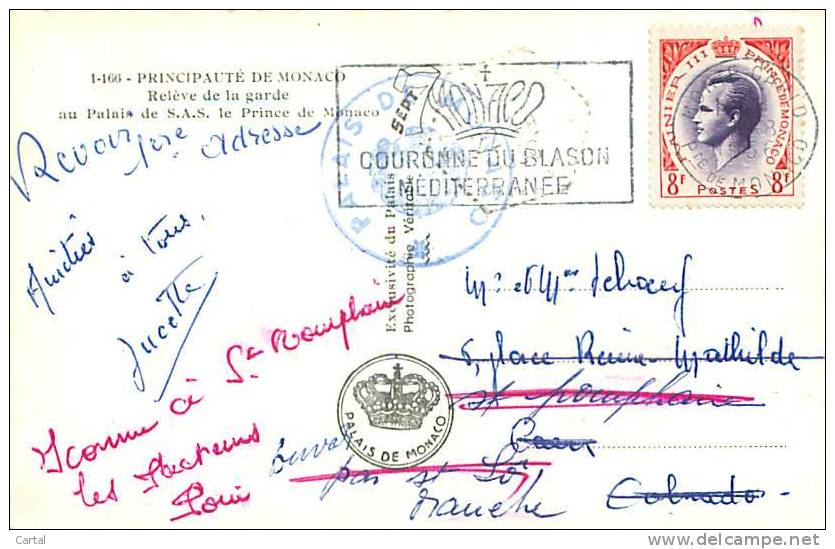 1-166 - PRINCIPAUTÉ DE MONACO
Relève de la garde
au Palais de S.A.S. le Prince de Monaco
Revoir 1ère adresse
Amitiés
à tous,
Lucette
Inconnu à St Pomphain
les Facteurs
SEPT
MONACO
COURONNE DU BLASON
MÉDITERRANÉE
PALAIS DE
Exclusivité du Palais
Photographie Véritable
PALAIS DE MONACO
RAINIER III PRINCE DE MONACO
8F POSTES 8F
PTE DE MONACO
Mr et Mme
5, place Reine Mathilde
st pomphaine
Caen
par st Lô
Manche
Calvados
Cartal
delcampe.net